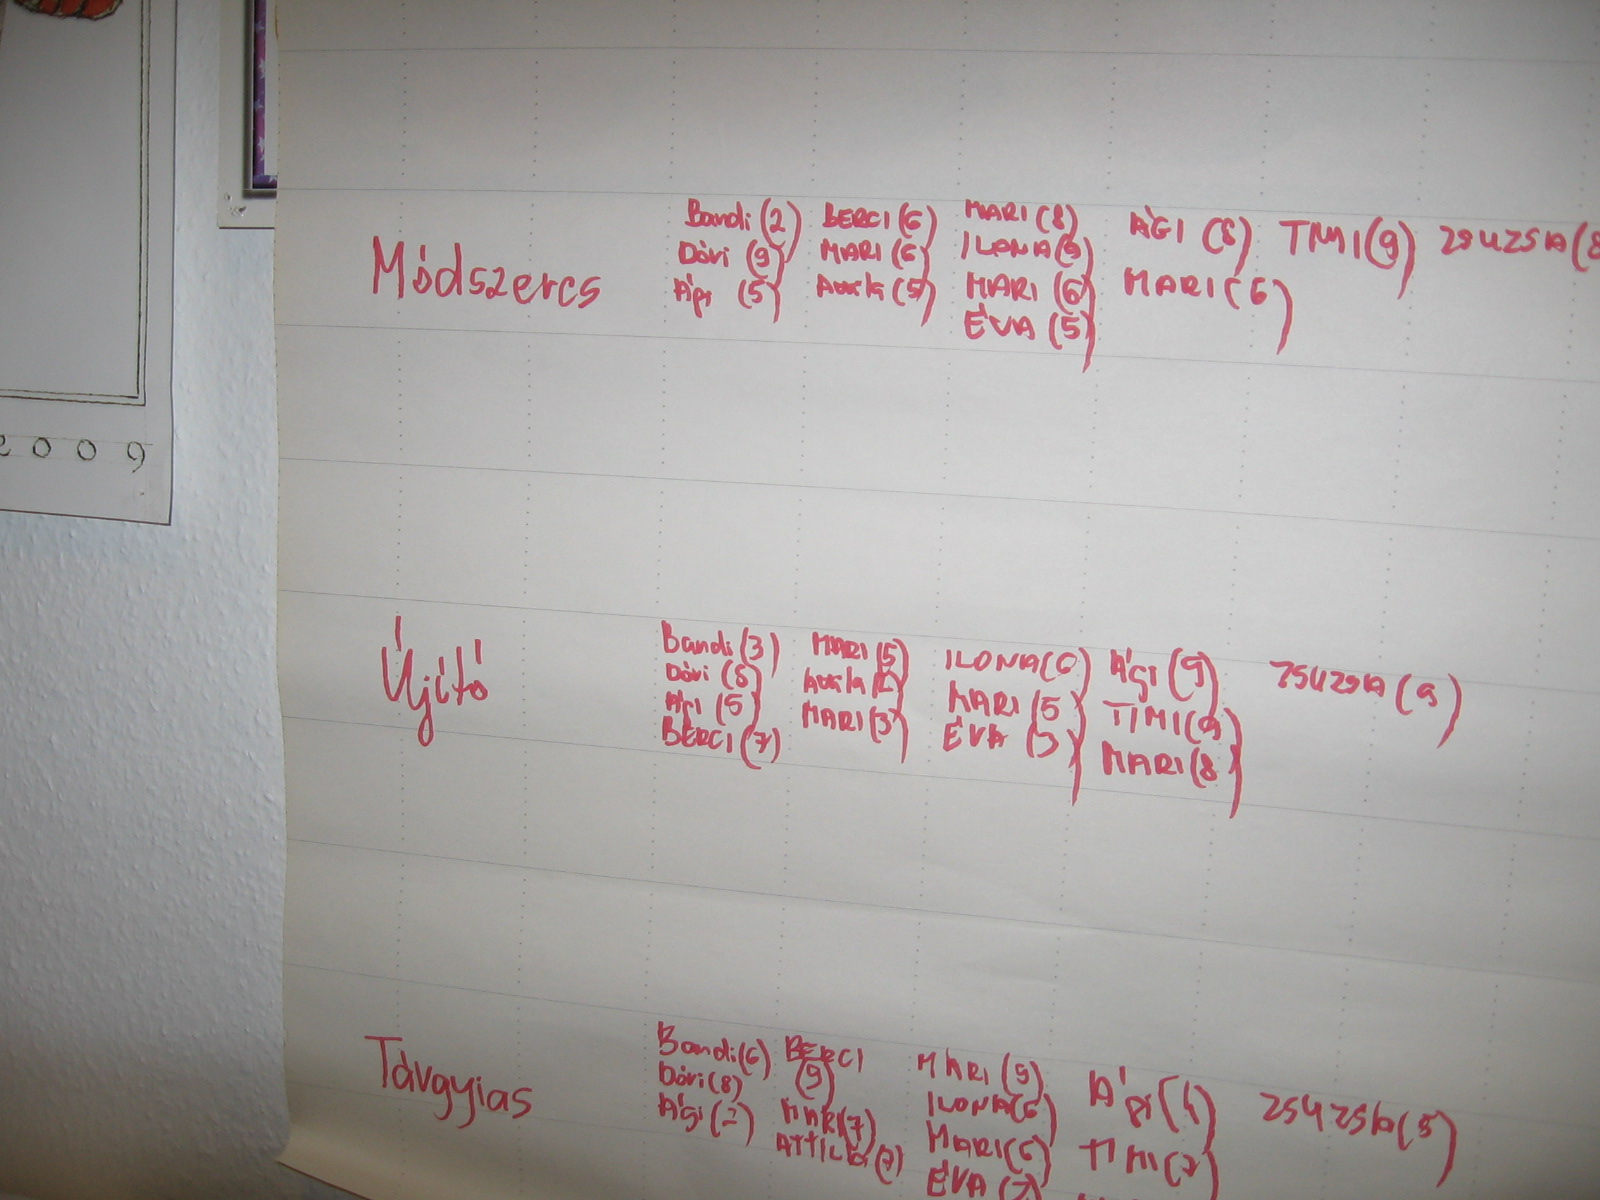 2009
Módszeres
Bandi (2) BERCI (6) MARI (8) ÁGI (8) TIMI (9) ZSUZSA (8
Dóri (9) MARI (6) ILONA (9) MARI (6)
Ági (5) Attila (5) MARI (6)
ÉVA (5)
Újító
Bandi (3) MARI (5) ILONA (6) Ági (9) ZSUZSA (9)
Dóri (8) Attila MARI (5) TIMI (9)
Ági (5) MARI (3) ÉVA (3) MARI (8)
BERCI (7)
Tárgyias
Bandi (6) BERCI MARI (5) Ági ZSUZSA (5)
Dóri (8) (9) ILONA (6) TIMI (7)
Ági (2) MARI (7) MARI (6)
ATTILA (7) ÉVA (7)